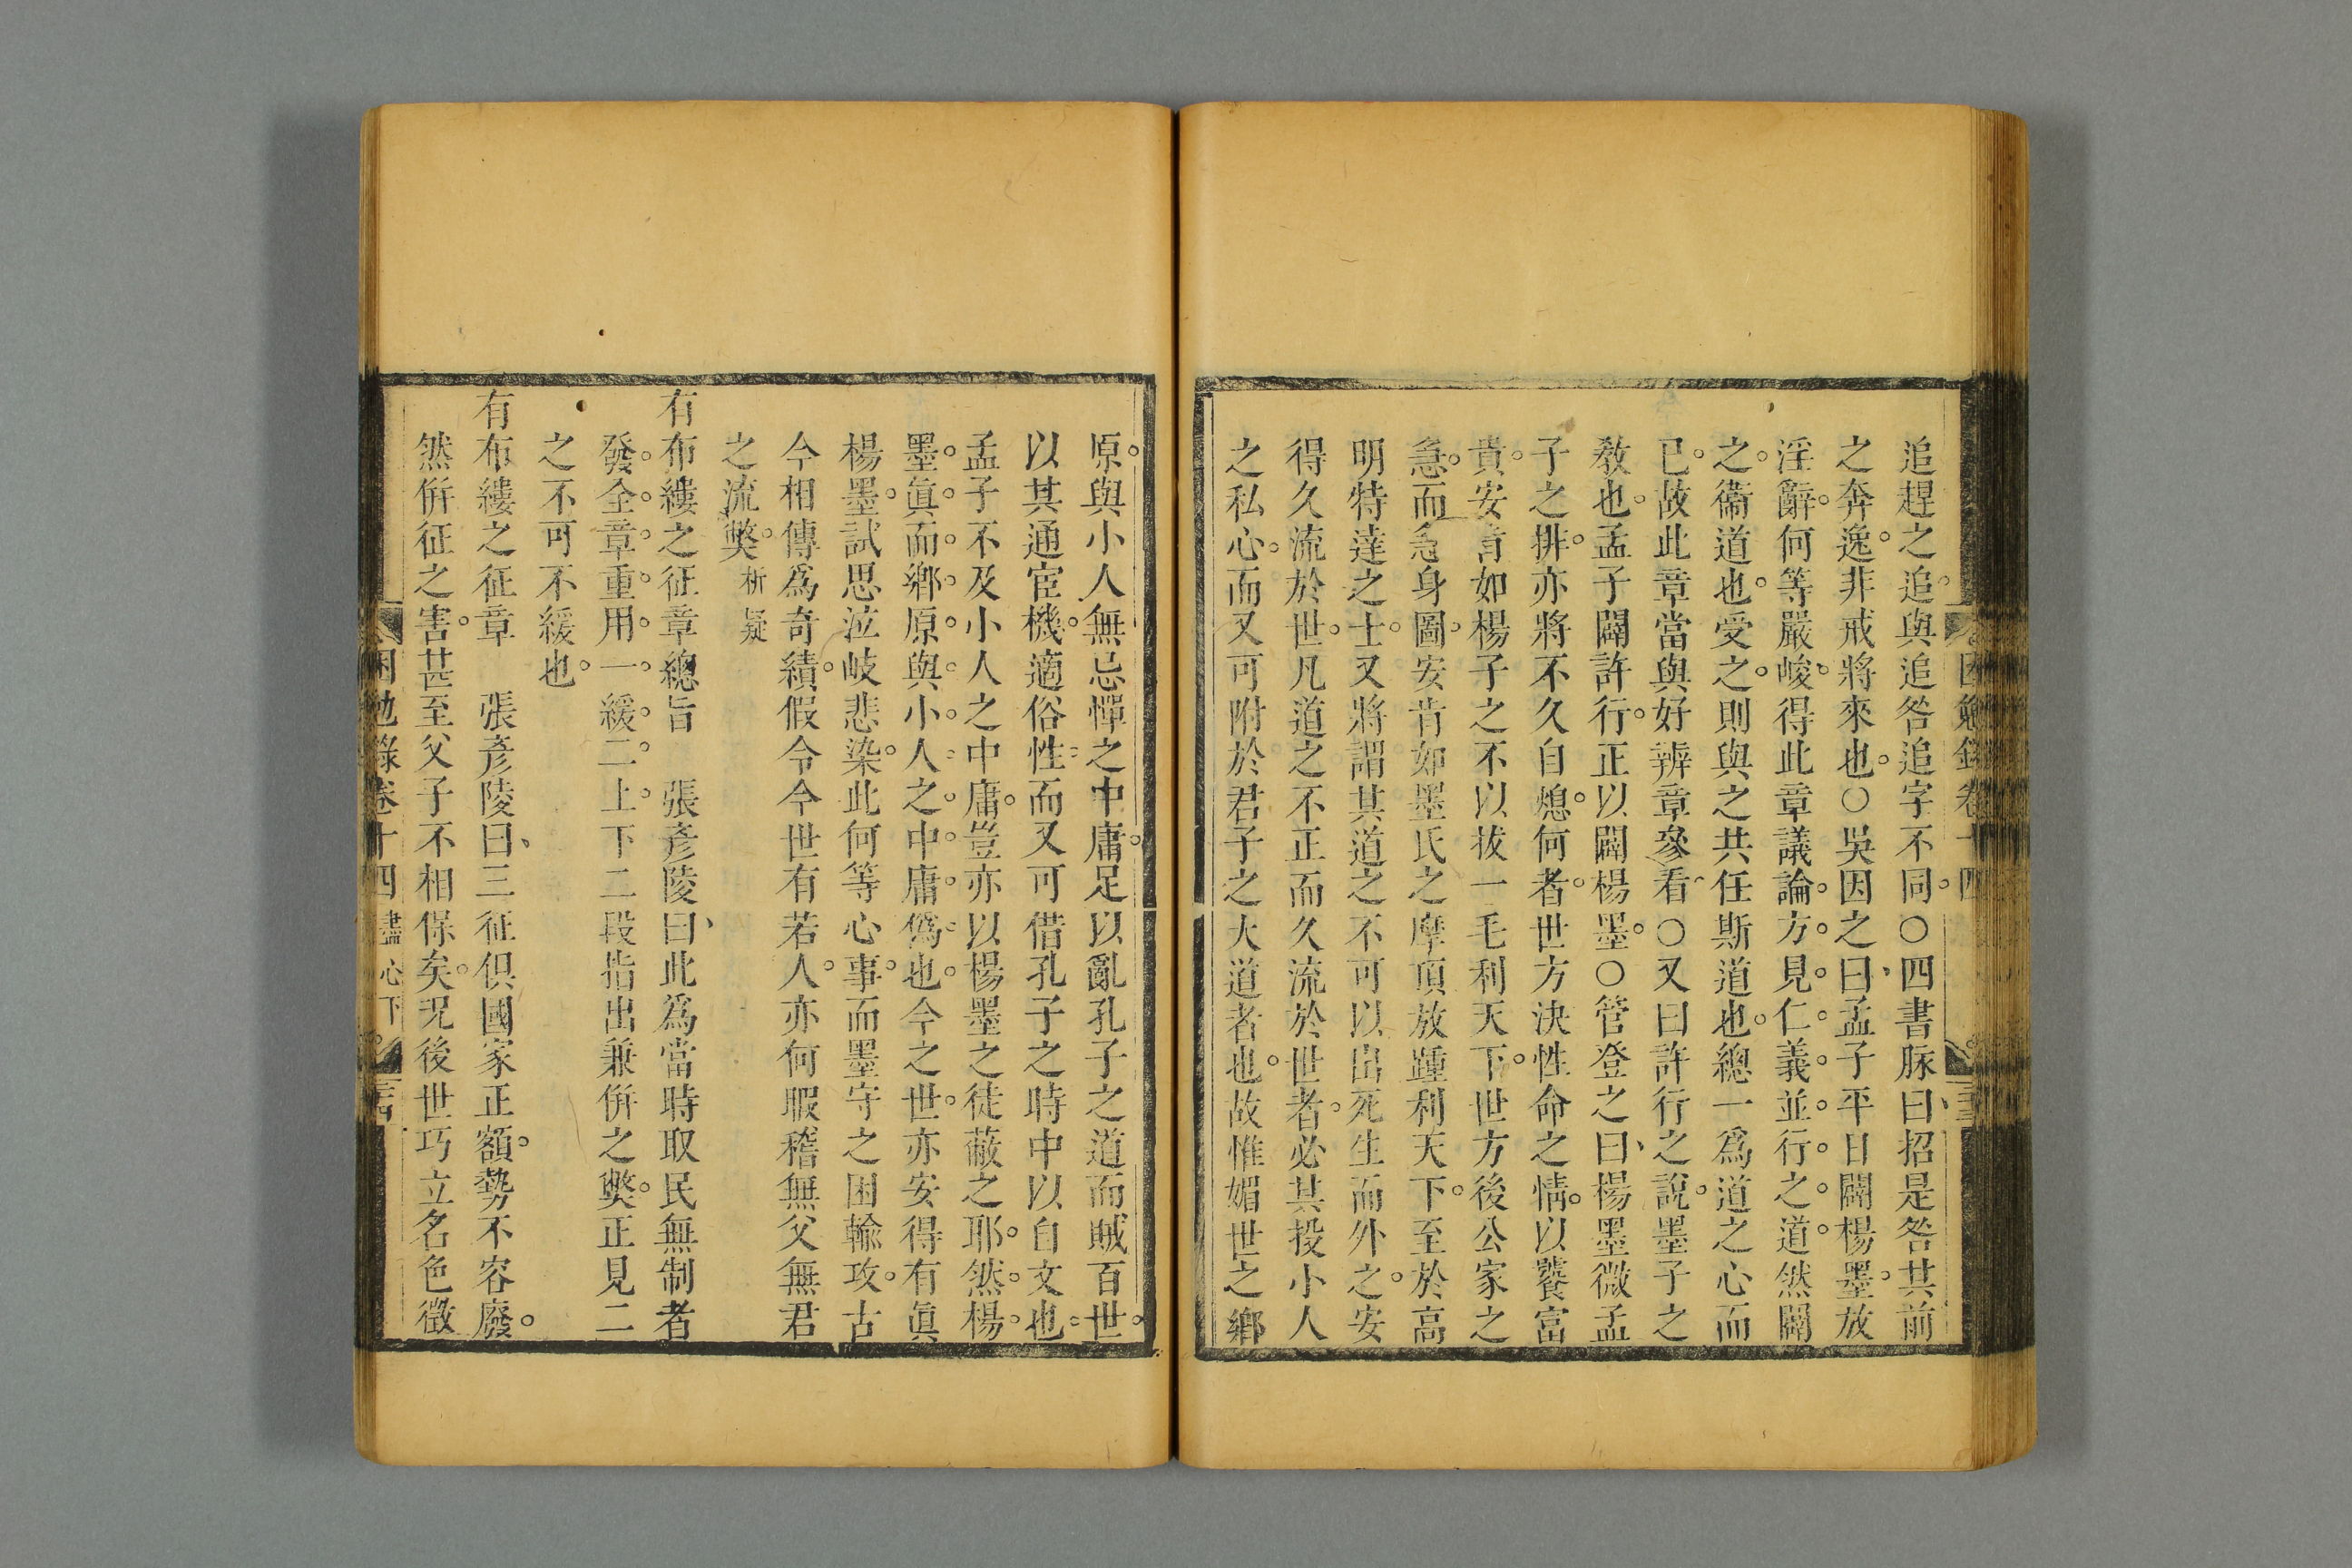 追趕之追與追咎追字不同○四書脉曰招是咎其前
之奔逸非戒將來也○吳因之曰孟子平日闢楊墨放
淫辭何等嚴峻得此章議論方見仁義並行之道然闢
之衞道也受之則與之共任斯道也總一爲道之心而
已故此章當與好辨章參看○又曰許行之說墨子之
教也孟子闢許行正以闢楊墨○管登之曰楊墨微孟
子之排亦將不久自熄何者世方決性命之情以饕富
貴安肯如楊子之不以拔一毛利天下世方後公家之
急而急身圖安肯如墨氏之摩頂放踵利天下至於高
明特達之士又將謂其道之不可以出死生而外之安
得久流於世凡道之不正而久流於世者必其投小人
之私心而又可附於君子之大道者也故惟媚世之鄉
原與小人無忌憚之中庸足以亂孔子之道而賊百世
以其通宦機適俗性而又可借孔子之時中以自文也
孟子不及小人之中庸豈亦以楊墨之徒蔽之耶然楊
墨眞而鄉原與小人之中庸僞也今之世亦安得有眞
楊墨試思泣岐悲染此何等心事而墨守之困輸攻古
今相傳爲奇績假令今世有若人亦何暇稽無父無君
之流獘 析疑
有布縷之征章總旨 張彥陵曰此爲當時取民無制者
發全章重用一緩二上下二段指出兼倂之獘正見二
之不可不緩也
有布縷之征章 張彥陵曰三征俱國家正額勢不容廢
然倂征之害甚至父子不相保矣況後世巧立名色徵
困勉錄卷十四 盡心下